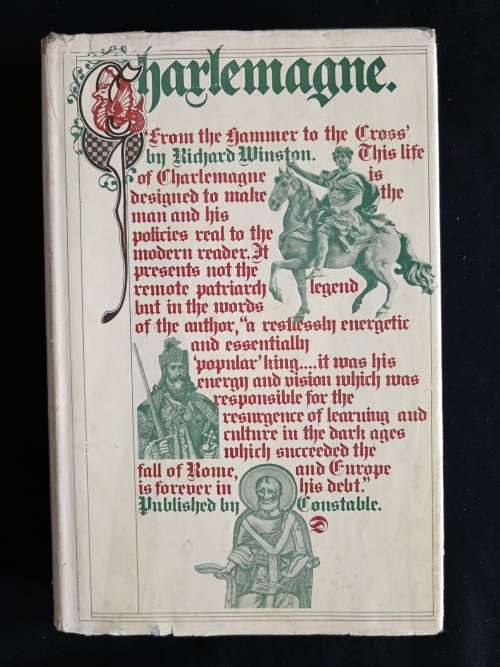 Charlemagne.
'From the Hammer to the Cross'
by Richard Winston. This life
of Charlemagne is
designed to make the
man and his
policies real to the
modern reader. It
presents not the
remote patriarch legend
but in the words
of the author, "a restlessly energetic
and essentially
'popular' king....it was his
energy and vision which was
responsible for the
resurgence of learning and
culture in the dark ages
which succeeded the
fall of Rome, and Europe
is forever in his debt."
Published by Constable.